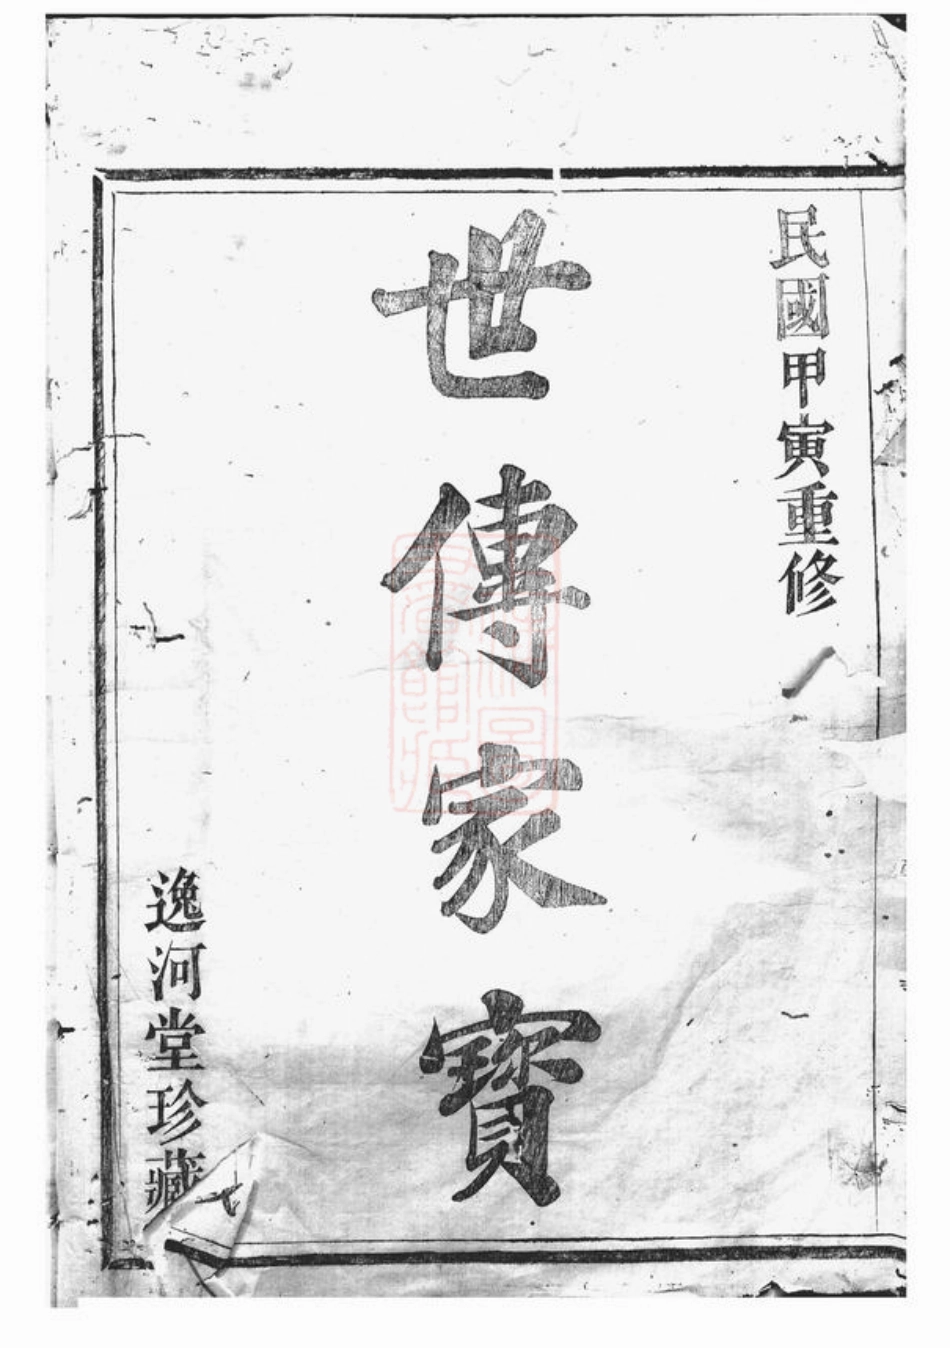 民國甲寅重修
世傳家寶
逸河堂珍藏